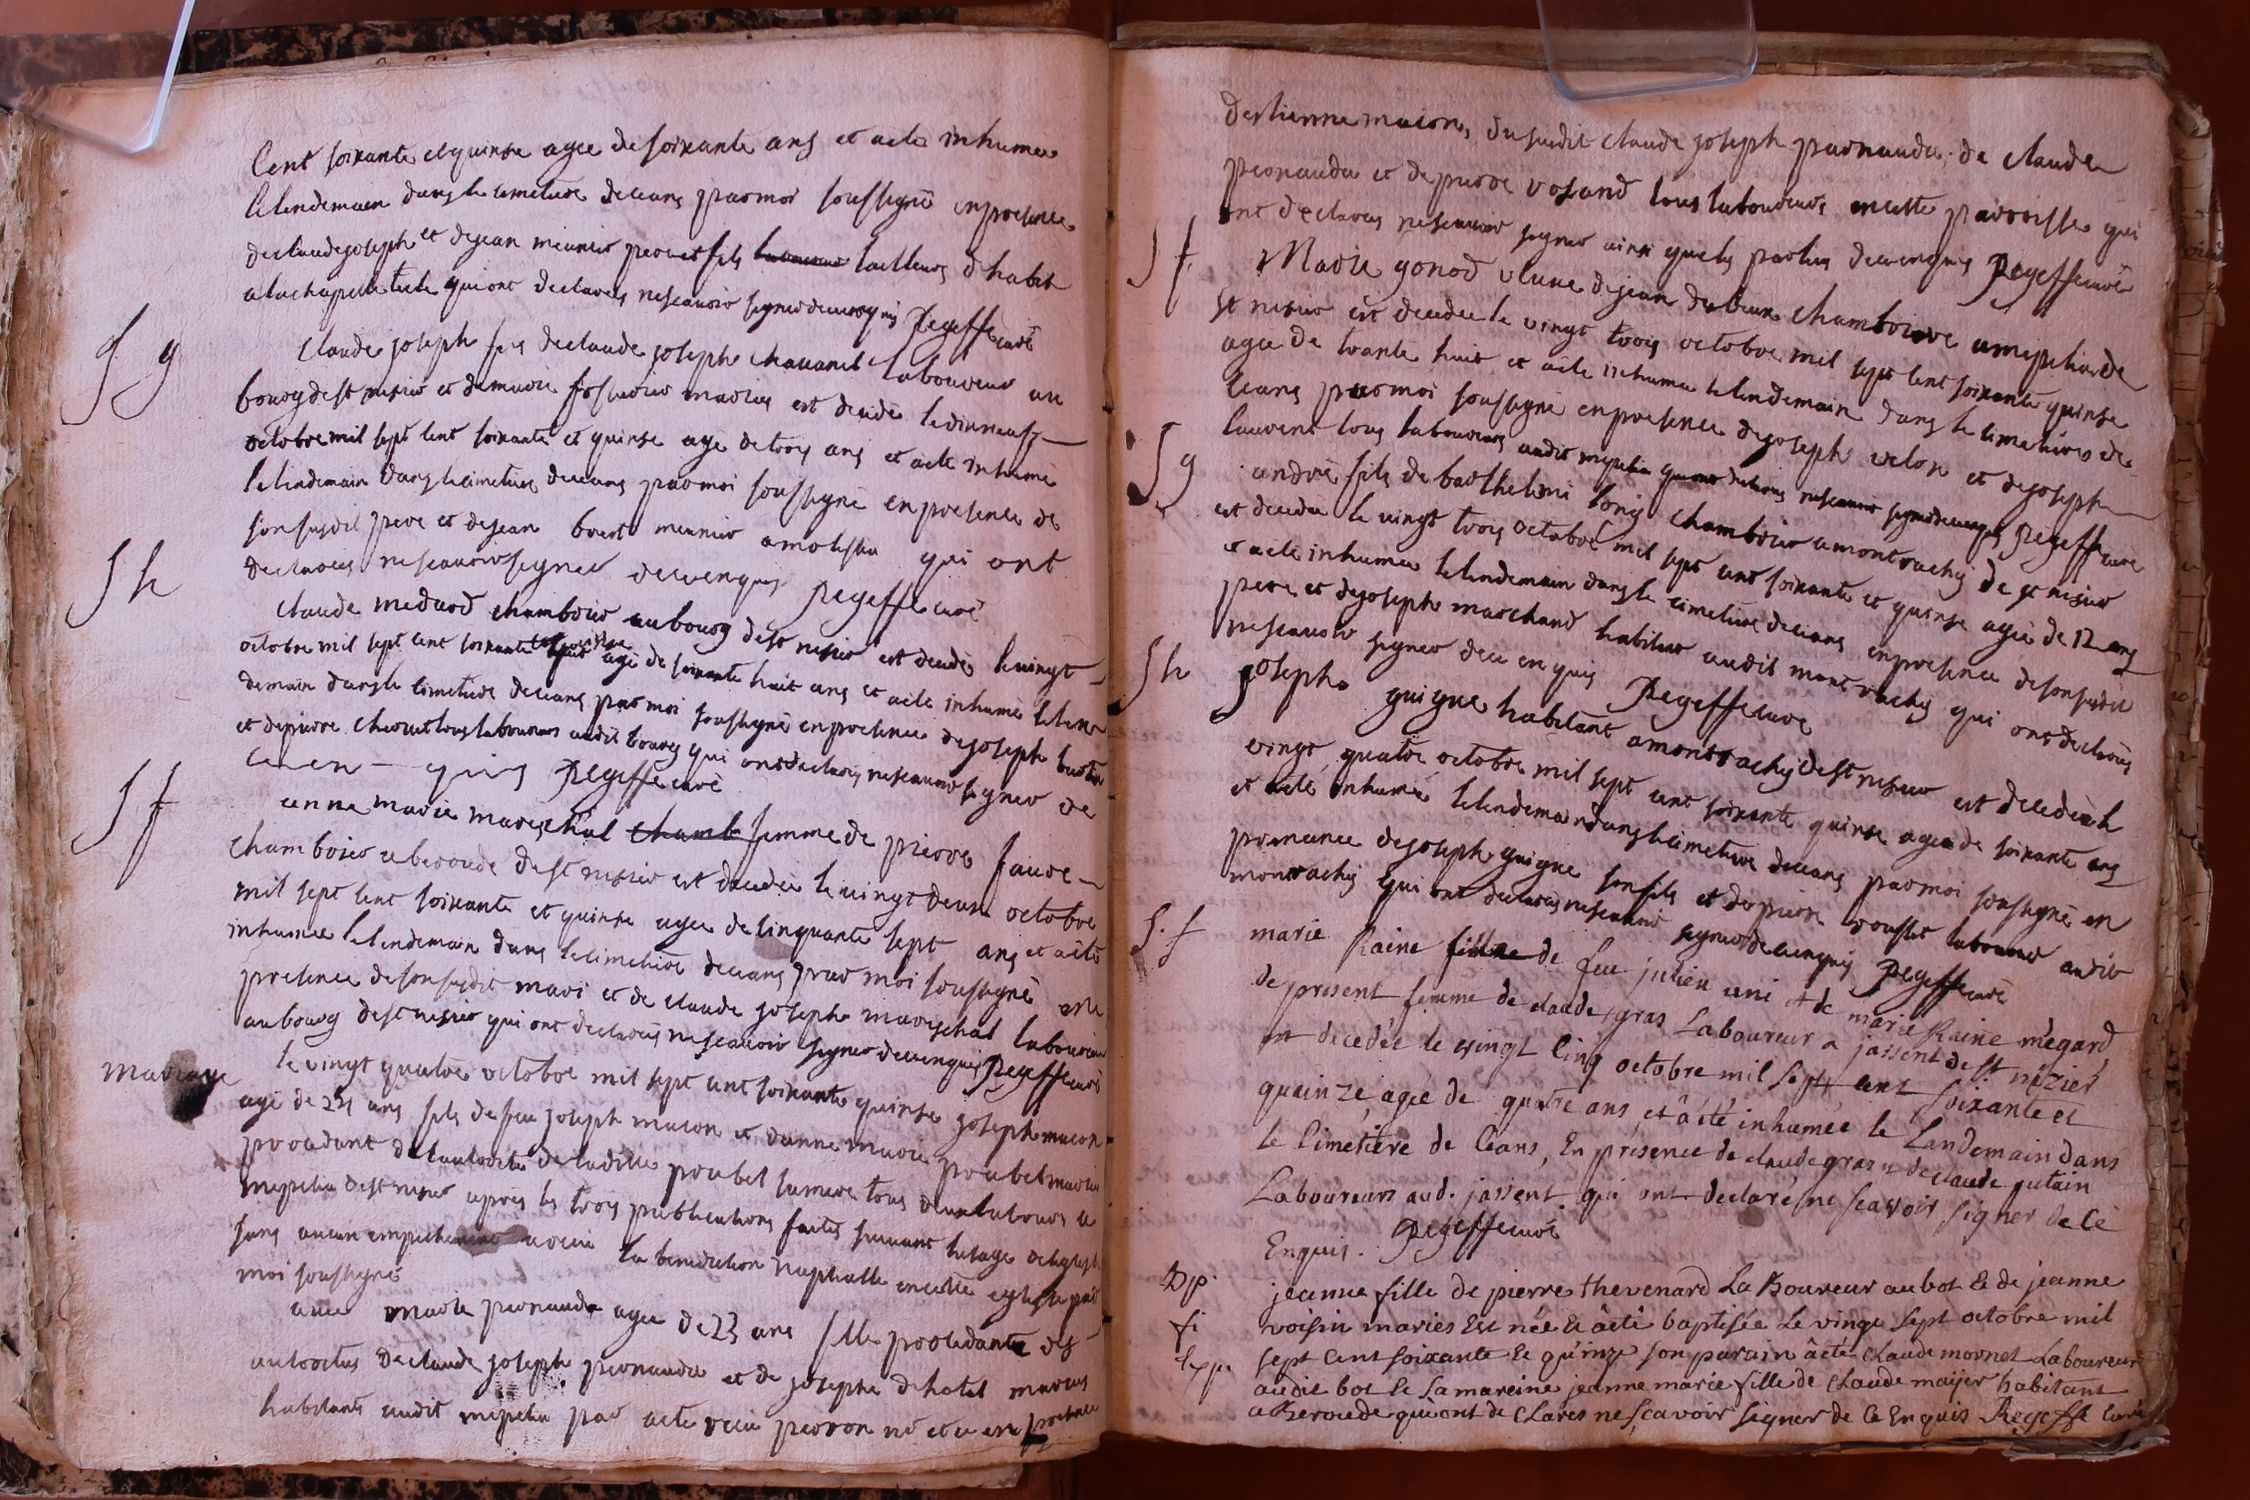 Cent soixante et quinse agee de soixante ans et a ete inhumee
le lendemain dans le cimetiere de ceans par moi soussigné en presence
de claude joseph et de jean meunier perraut fils tailleurs d'habit
a la chapelle tecle qui ont declarés ne scavoir signer de ce enquis Regeffe curé
S g
Claude joseph fils de claude joseph chavanel laboureur au
bourg de st nisier et de marie mariés est decédé le dixneuf
octobre mil sept cent soixante et quinse agé de trois ans et a ete inhumé
le lendemain dans le cimetiere de ceans par moi soussigné en presence de
son susdit pere et de jean meunier qui ont
declarés ne scavoir signer de ce enquis Regeffe curé
S h
Claude medard chambrier au bourg de st nisier est decédé le vingt
octobre mil sept cent soixante et quinse agé de soixante huit ans et a ete inhumé le len
demain dans le cimetiere de ceans par moi soussigné en presence de joseph
et de pierre tous laboureurs audit bourg qui ont declarés ne scavoir signer de
ce en quis Regeffe curé
S f
anne marie mareschal chamb femme de pierre faure
chambrier a beroude de st nisier est decedée le vingt deux octobre
mil sept cent soixante et quinse agee de cinquante sept ans et a ete
inhumee le lendemain dans le cimetiere de ceans par moi soussigné en
presence de son susdit mari et de claude joseph mareschal laboureur
au bourg de st nisier qui ont declarés ne scavoir signer de ce enquis Regeffe curé
mariage
le vingt quatre octobre mil sept cent soixante quinse joseph macon
agé de 24 ans fils de feu joseph macon et d'anne marie poubel mariés
procedant de l'autorité de ladite poubel sa mere tous deux laboureurs a
mepelin de st nisier apres les trois publications faites suivant l'usage
sans aucun empechement a recu la benediction nuptialle en cette eglise par
moi soussigné
avec marie perraudin agee de 23 ans fille procedante des
autorités de claude joseph perraudin et de josephe dhotel mariés
habitants audit mepelin par acte recu perron nre et ce en presence
d'estienne macon, du susdit claude joseph perraudin, de claude
perraudin et de pierre vosand tous laboureurs en cette parroisse qui
ont declarés ne scavoir signer ainsi que les parties de ce enquis Regeffe curé
S f
Marie gonod veuve de jean dubeux chambriere a mepelin de
st nisier est decedee le vingt trois octobre mil sept cent soixante quinse
agee de trante huit et a ete inhumee le lendemain dans le cimetiere de
ceans par moi soussigné en presence de joseph velon et de joseph
laurent tous laboureurs audit mepelin qui ont declarés ne scavoir signer de ce enquis Regeffe curé
S g
andré fils de barthelemi bong chambrier a montrachy de st nisier
est decedé le vingt trois octobre mil sept cent soixante et quinse agé de 12 ans
et a ete inhumé le lendemain dans le cimetiere de ceans en presence de son susdit
pere et de joseph marchand habitans audit montrachy qui ont declarés
ne scavoir signer de ce en quis Regeffe curé
S h
joseph guigue habitant a montrachy de st nisier est decedé le
vingt quatre octobre mil sept cent soixante quinse agé de soixante ans
et a eté inhumé le lendemain dans le cimetiere de ceans par moi soussigné en
presence de joseph guigue son fils et de pierre roussel laboureur audit
montrachy qui ont declarés ne scavoir signer de ce enquis Regeffe curé
S. f
marie Raine fille de feu julien uni et de marie Raine mégard
de présent femme de claude gras Laboureur a jassent de st nizier
est décedée le vingt Cinq octobre mil sept cent soixante et
quainze agée de quatre ans, et â été inhumée le Landemain dans
le Cimetiere de Céans, En présence de claude gras et de claude putain
Laboureurs aud. jassent qui ont declaré ne scavoir signer de Ce
Enquis. Regeffe curé
Bp.
fi
jeanne fille de pierre thevenard La Boureur au bot & de jeanne
voisin mariés Est née & âété baptisée Le vingt sept octobre mil
sept Cent soixante & quinze son parain âété Claude mornet Laboureur
audit bot & sa mareine jeanne marie fille de Claude maÿer habitant
a Beroude qui ont de Clarés ne scavoir signer de Ce Enquis Regeffe Curé